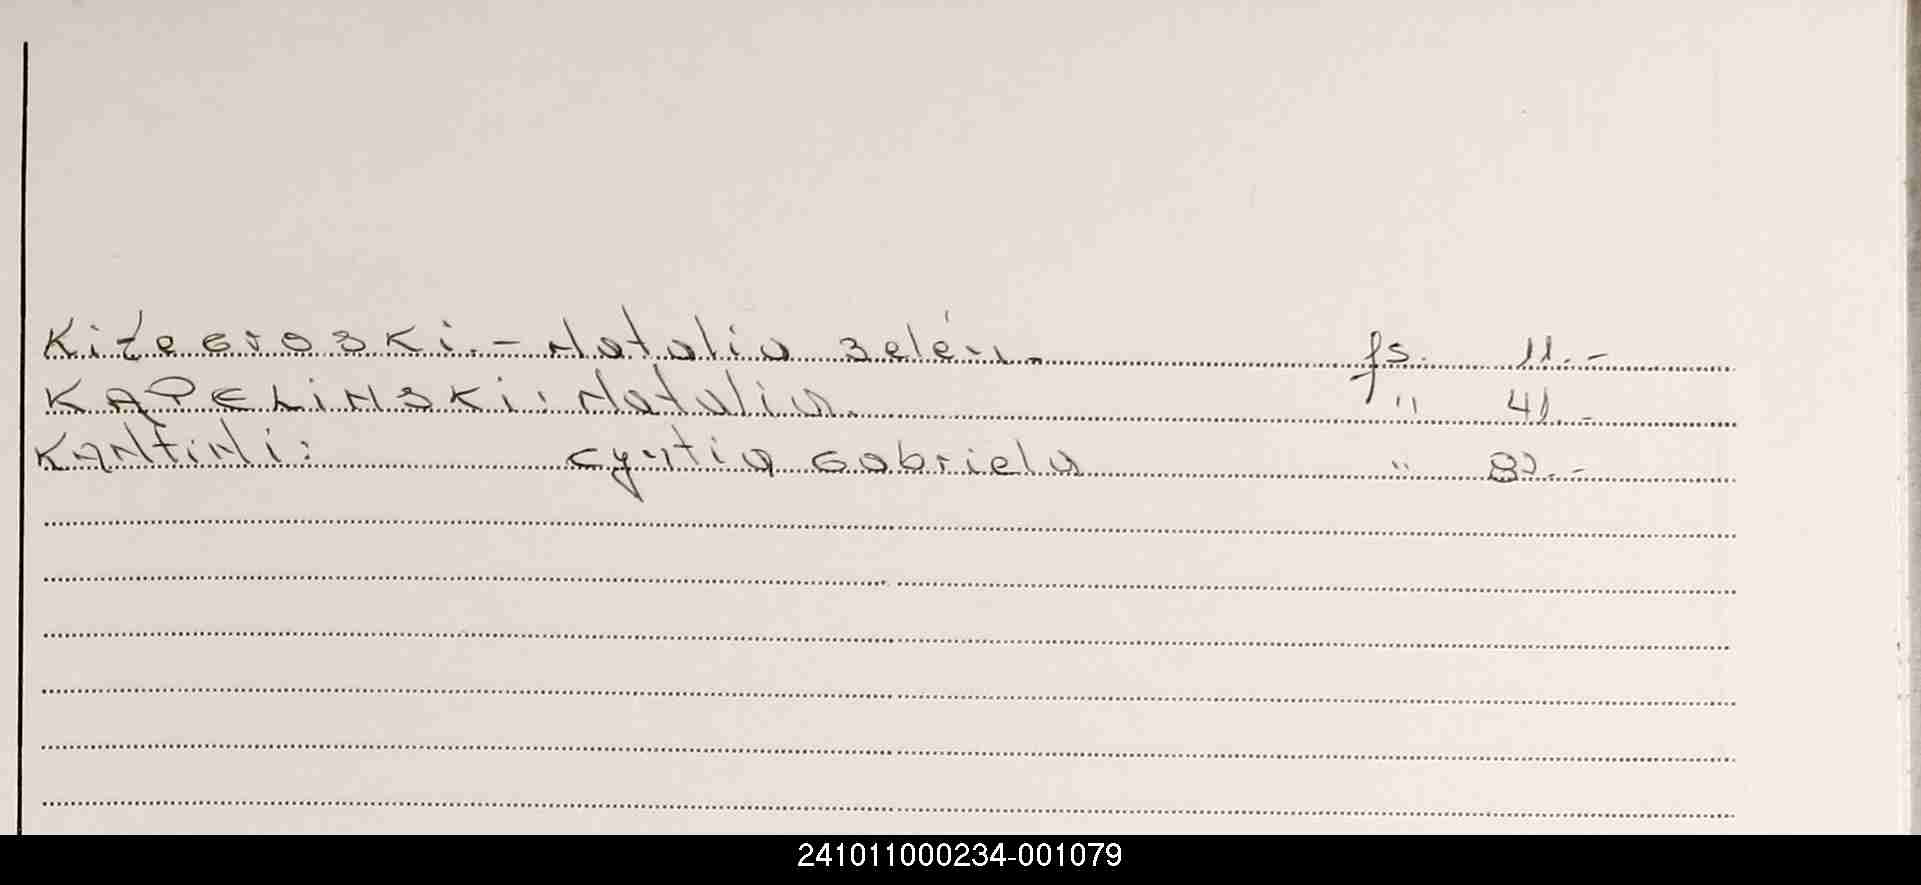 Kitegroski.- Natalia Belén. fs. 11.-
KAPELINSKI: Natalia. " 41.-
KANTINI: Cyntia Gabriela "
241011000234-001079